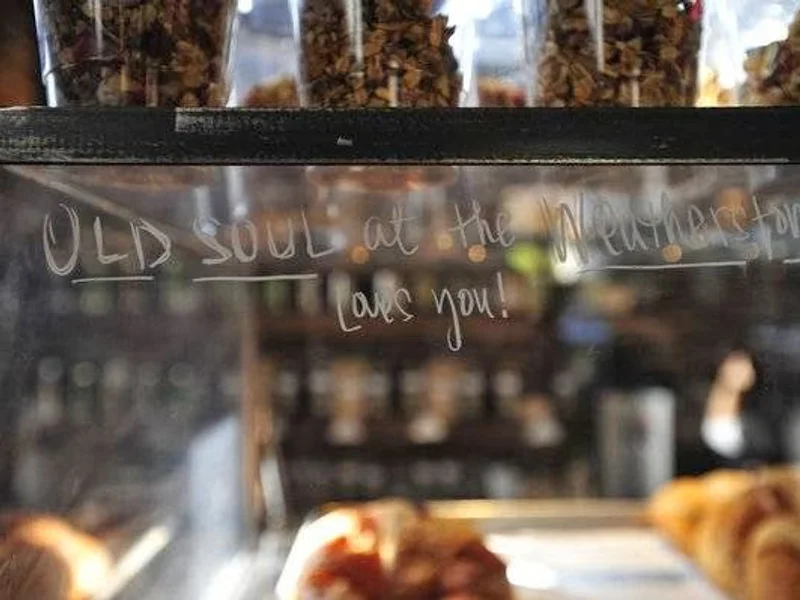 OLD SOUL at the Weatherston
Loves you!